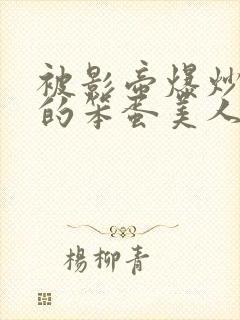 被影帝爆炒
的笨蛋美人
楊柳青